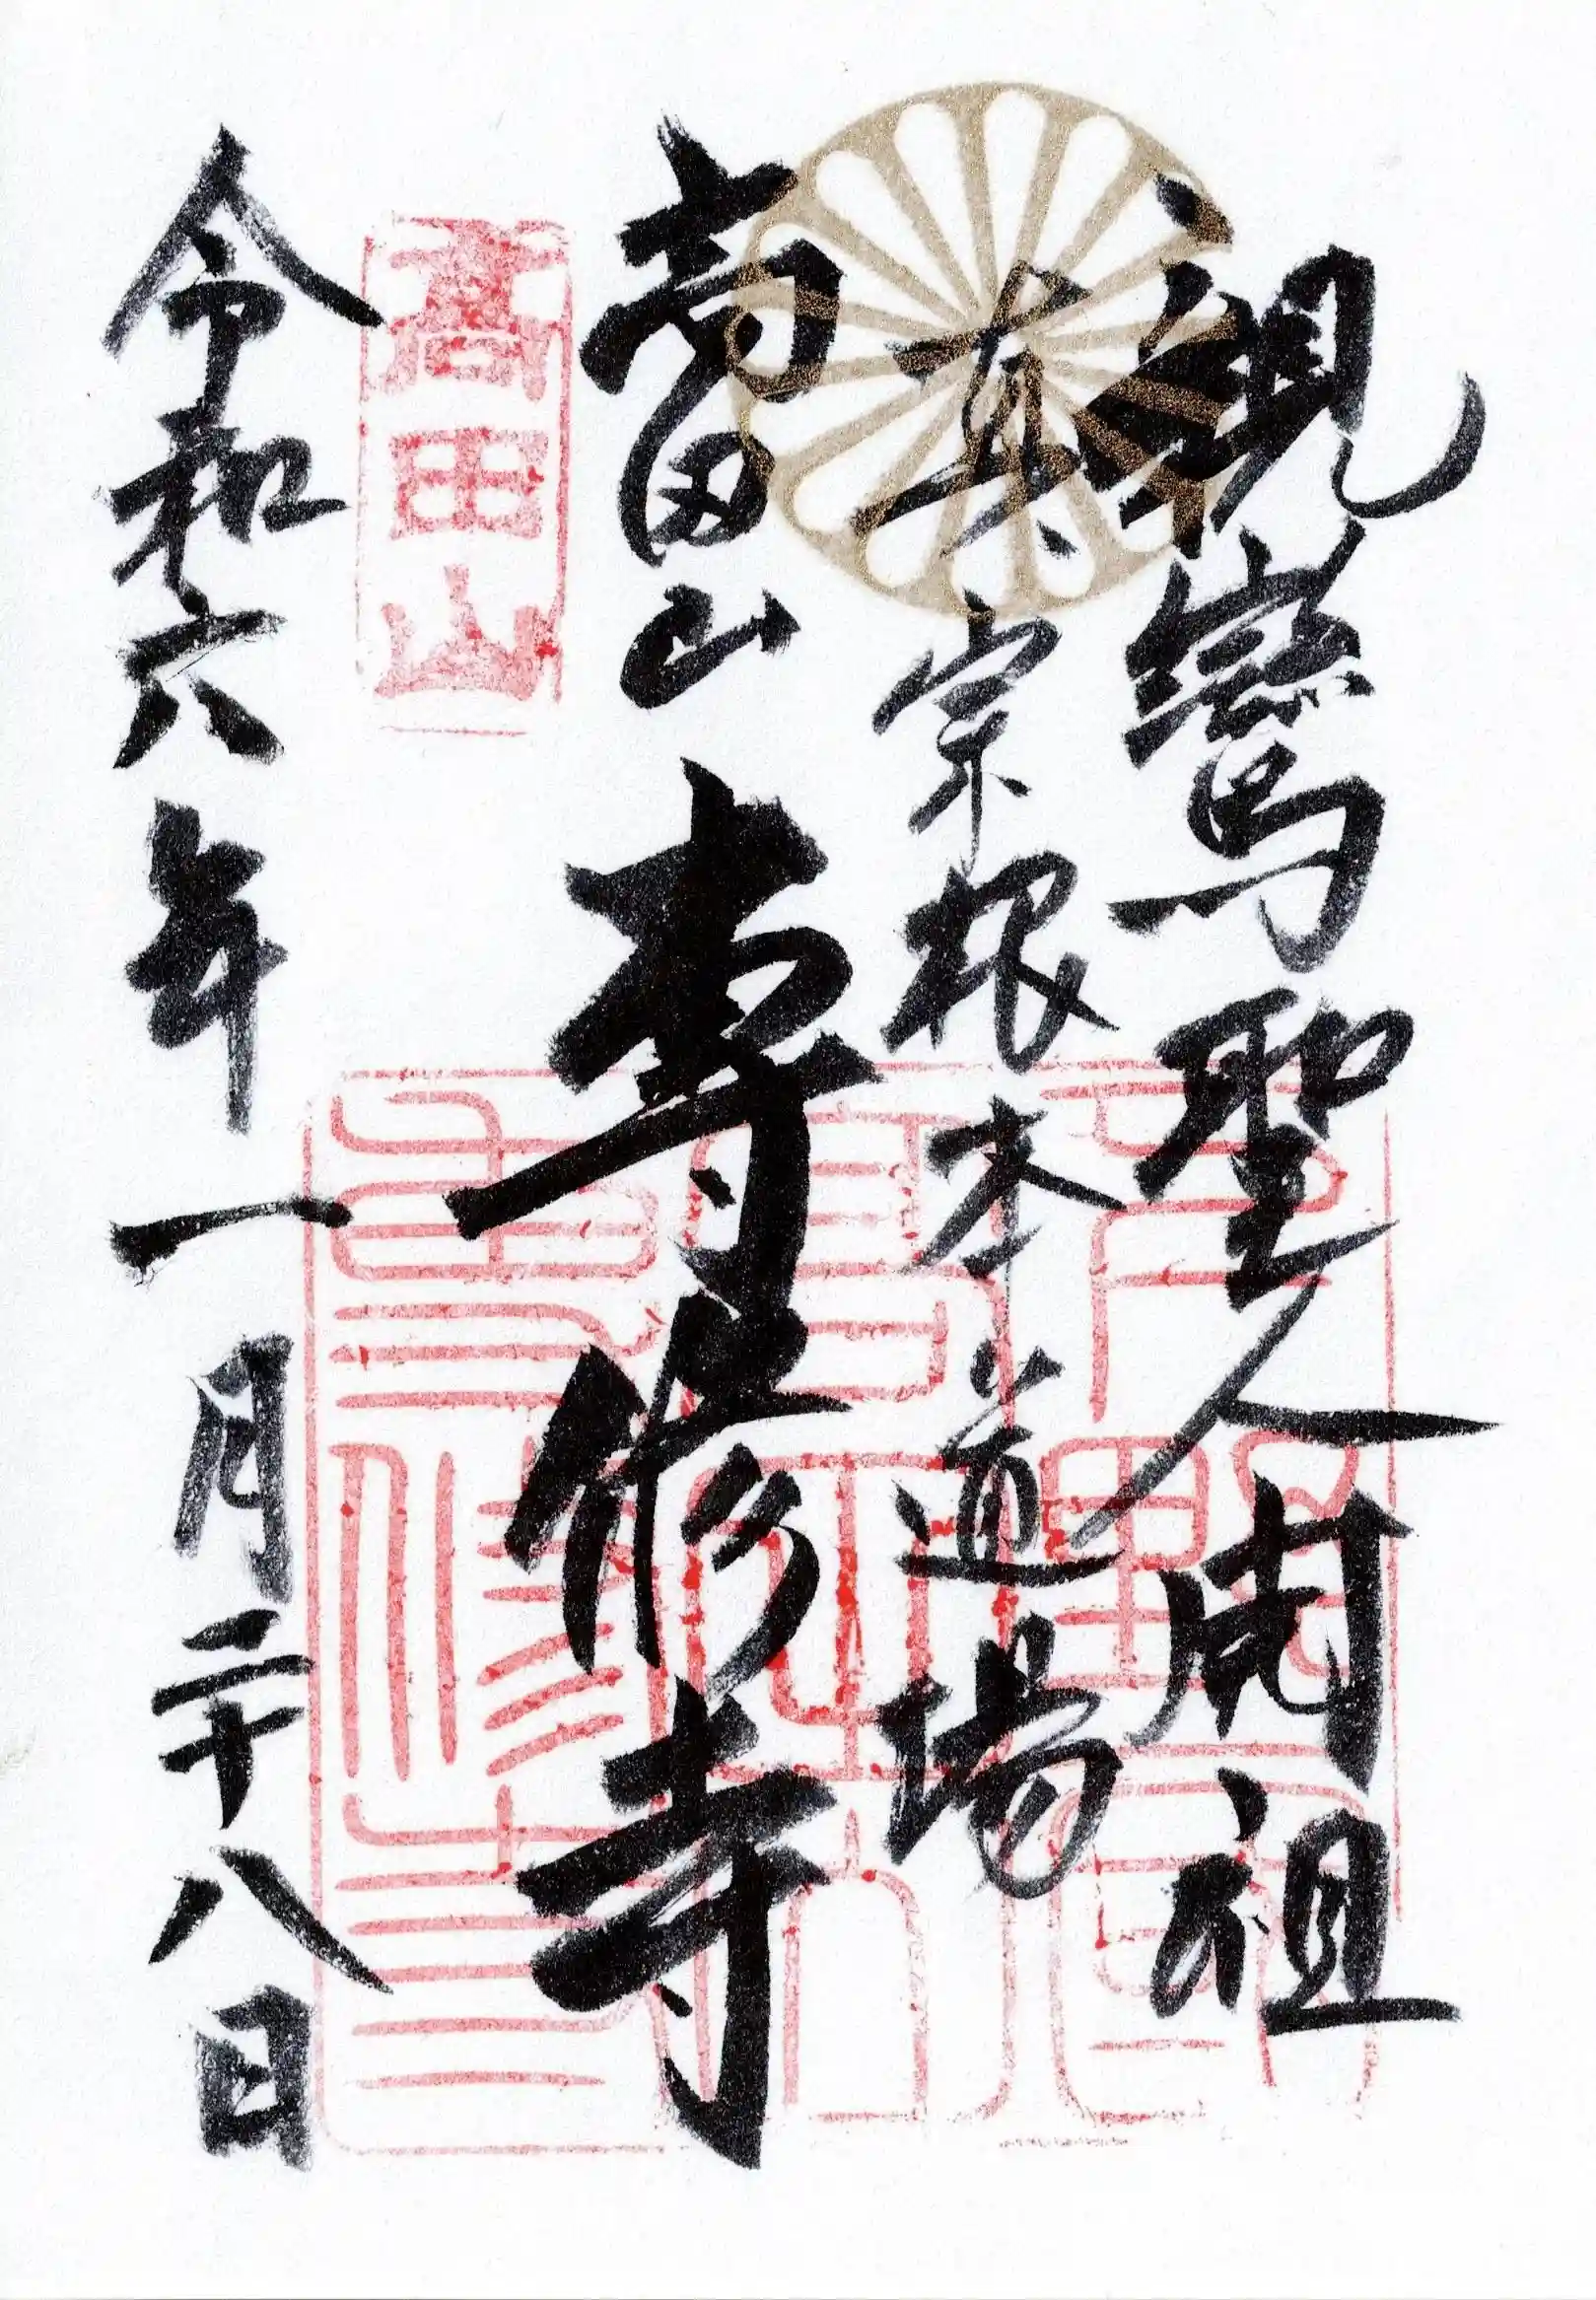 親鸞聖人開祖
真宗根本道場
高田山
專修寺
高田山
令和六年一月二十八日